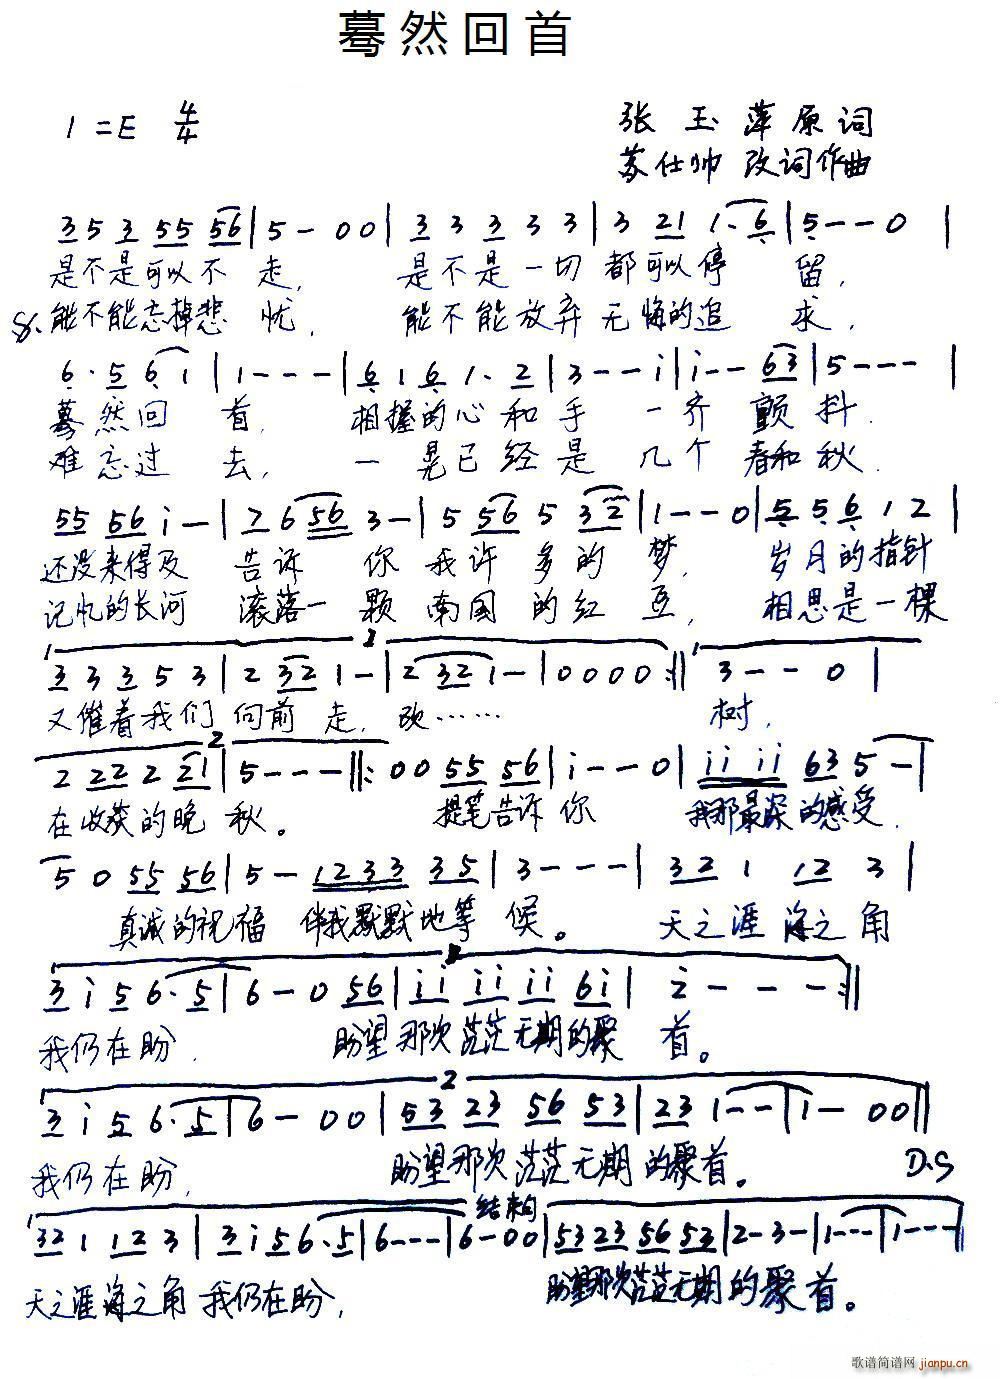 蓦然回首
1=E 4/4
张玉萍原词
苏仕帅 改词作曲
3 5 3 55 56 | 5 - 0 0 | 3 3 3 3 3 | 3 21 1. 6 | 5 - - - 0 |
是不是可以不 走, 是不是一切都可以停 留,
能不能忘掉悲 忧, 能不能放弃无悔的追 求,
6. 5 6 1 | 1 - - - | 6 1 6 1. 2 | 3 - - i | i - - 63 | 5 - - - |
蓦然回 首, 相握的心和手 一齐 颤抖.
难忘过 去, 一晃已经是 几个 春和秋.
55 56 i - | 7 6 56 3 - | 5 56 5 32 | 1 - - 0 | 5 5 6 1 2 |
还没来得及 告诉 你 我许多的 梦, 岁月的指针
记忆的长河 滚落一颗 南国的红 豆, 相思是一棵
1
3 3 3 5 3 | 2 32 1 - | 2 32 1 - | 0 0 0 0 :|| 3 - - 0 |
又催着我们 向前 走, 啵…… 树,
2
2 22 2 21 | 5 - - - ||: 0 0 55 56 | i - - 0 | ii ii 63 5 - |
在收获的晚 秋。 提笔告诉 你 我那最深的感受,
5 0 55 56 | 5 - 12 33 35 | 3 - - - | 32 1 12 3 |
真诚的祝福 伴我默默地等 候。 天之涯 海之角
3 i 5 6. 5 | 6 - 0 56 | ii ii ii 6i | 2 - - - :||
我仍在盼, 盼望那次茫茫无期的聚 首。
2
3 i 5 6. 5 | 6 - 0 0 | 53 23 56 53 | 23 1 - - | 1 - 0 0 ||
我仍在盼, 盼望那次茫茫无期的聚首。 D.S
结束句
32 1 12 3 | 3 i 5 6. 5 | 6 - - - | 6 - 0 0 | 53 23 56 53 | 2 - 3 - | 1 - - - | 1 - - - |
天之涯海之角 我仍在盼, 盼望那次茫茫无期的聚 首。
歌谱简谱网 jianpu.cn